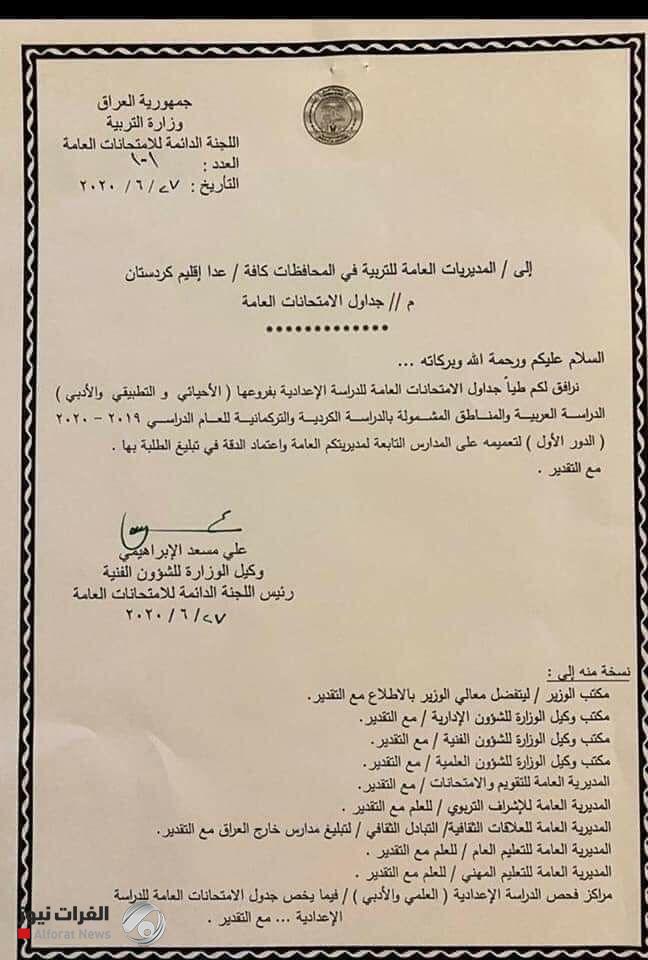 جمهورية العراق
وزارة التربية
اللجنة الدائمة للامتحانات العامة
العدد : ١٠١
التأريخ : ٢٧ / ٦ / ٢٠٢٠
إلى / المديريات العامة للتربية في المحافظات كافة / عدا إقليم كردستان
م // جداول الامتحانات العامة
•••••••••••••
السلام عليكم ورحمة الله وبركاته ...
نرافق لكم طياً جداول الامتحانات العامة للدراسة الإعدادية بفروعها ( الأحيائي و التطبيقي والأدبي )
الدراسة العربية والمناطق المشمولة بالدراسة الكردية والتركمانية للعام الدراسي ٢٠١٩ – ٢٠٢٠
( الدور الأول ) لتعميمه على المدارس التابعة لمديريتكم العامة واعتماد الدقة في تبليغ الطلبة بها .
مع التقدير .
علي مسعد الإبراهيمي
وكيل الوزارة للشؤون الفنية
رئيس اللجنة الدائمة للامتحانات العامة
٢٧ / ٦ / ٢٠٢٠
نسخة منه إلى :
مكتب الوزير / ليتفضل معالي الوزير بالاطلاع مع التقدير.
مكتب وكيل الوزارة للشؤون الإدارية / مع التقدير.
مكتب وكيل الوزارة للشؤون الفنية / مع التقدير.
مكتب وكيل الوزارة للشؤون العلمية / مع التقدير.
المديرية العامة للتقويم والامتحانات / مع التقدير.
المديرية العامة للإشراف التربوي / للعلم مع التقدير .
المديرية العامة للعلاقات الثقافية/ التبادل الثقافي / لتبليغ مدارس خارج العراق مع التقدير.
المديرية العامة للتعليم العام / للعلم مع التقدير .
المديرية العامة للتعليم المهني / للعلم مع التقدير .
مراكز فحص الدراسة الإعدادية ( العلمي والأدبي ) / فيما يخص جدول الامتحانات العامة للدراسة
الإعدادية ... مع التقدير .
الفرات نيوز
Alforat News